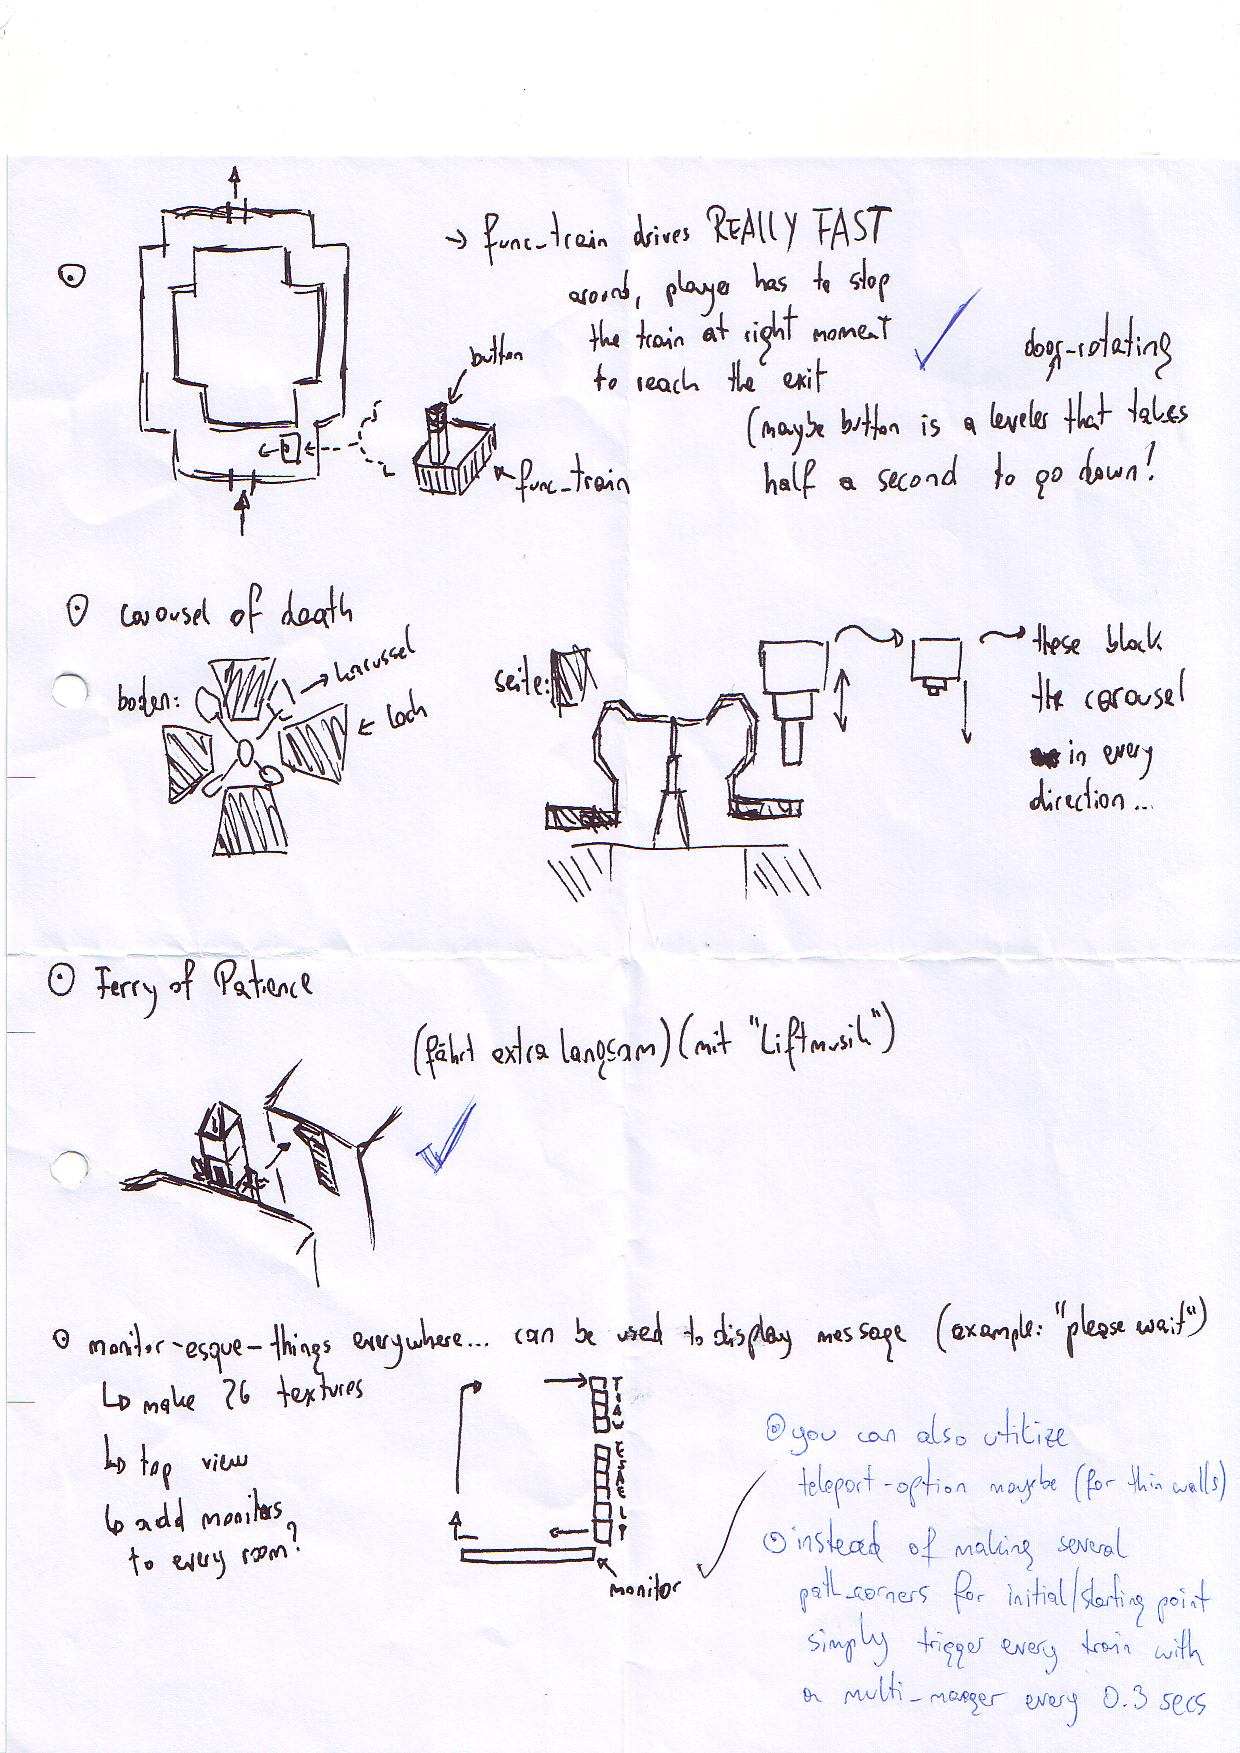 → func_train drives REALLY FAST
around, player has to stop
the train at right moment
to reach the exit
door-rotating
(maybe button is a leveler that takes
half a second to go down!
button
func_train
carousel of death
boden:
karussel
Loch
seite:
these block
the carousel
in every
direction...
Ferry of Patience
(fährt extra langsam) (mit "Liftmusik")
monitor-esque-things everywhere... can be used to display message (example: "please wait")
↳ make 26 textures
↳ top view
↳ add monitors
to every room?
T
I
A
W
E
S
A
E
L
P
monitor
you can also utilize
teleport-option maybe (for thin walls)
instead of making several
path_corners for initial/starting point
simply trigger every train with
a multi-manger every 0.3 secs